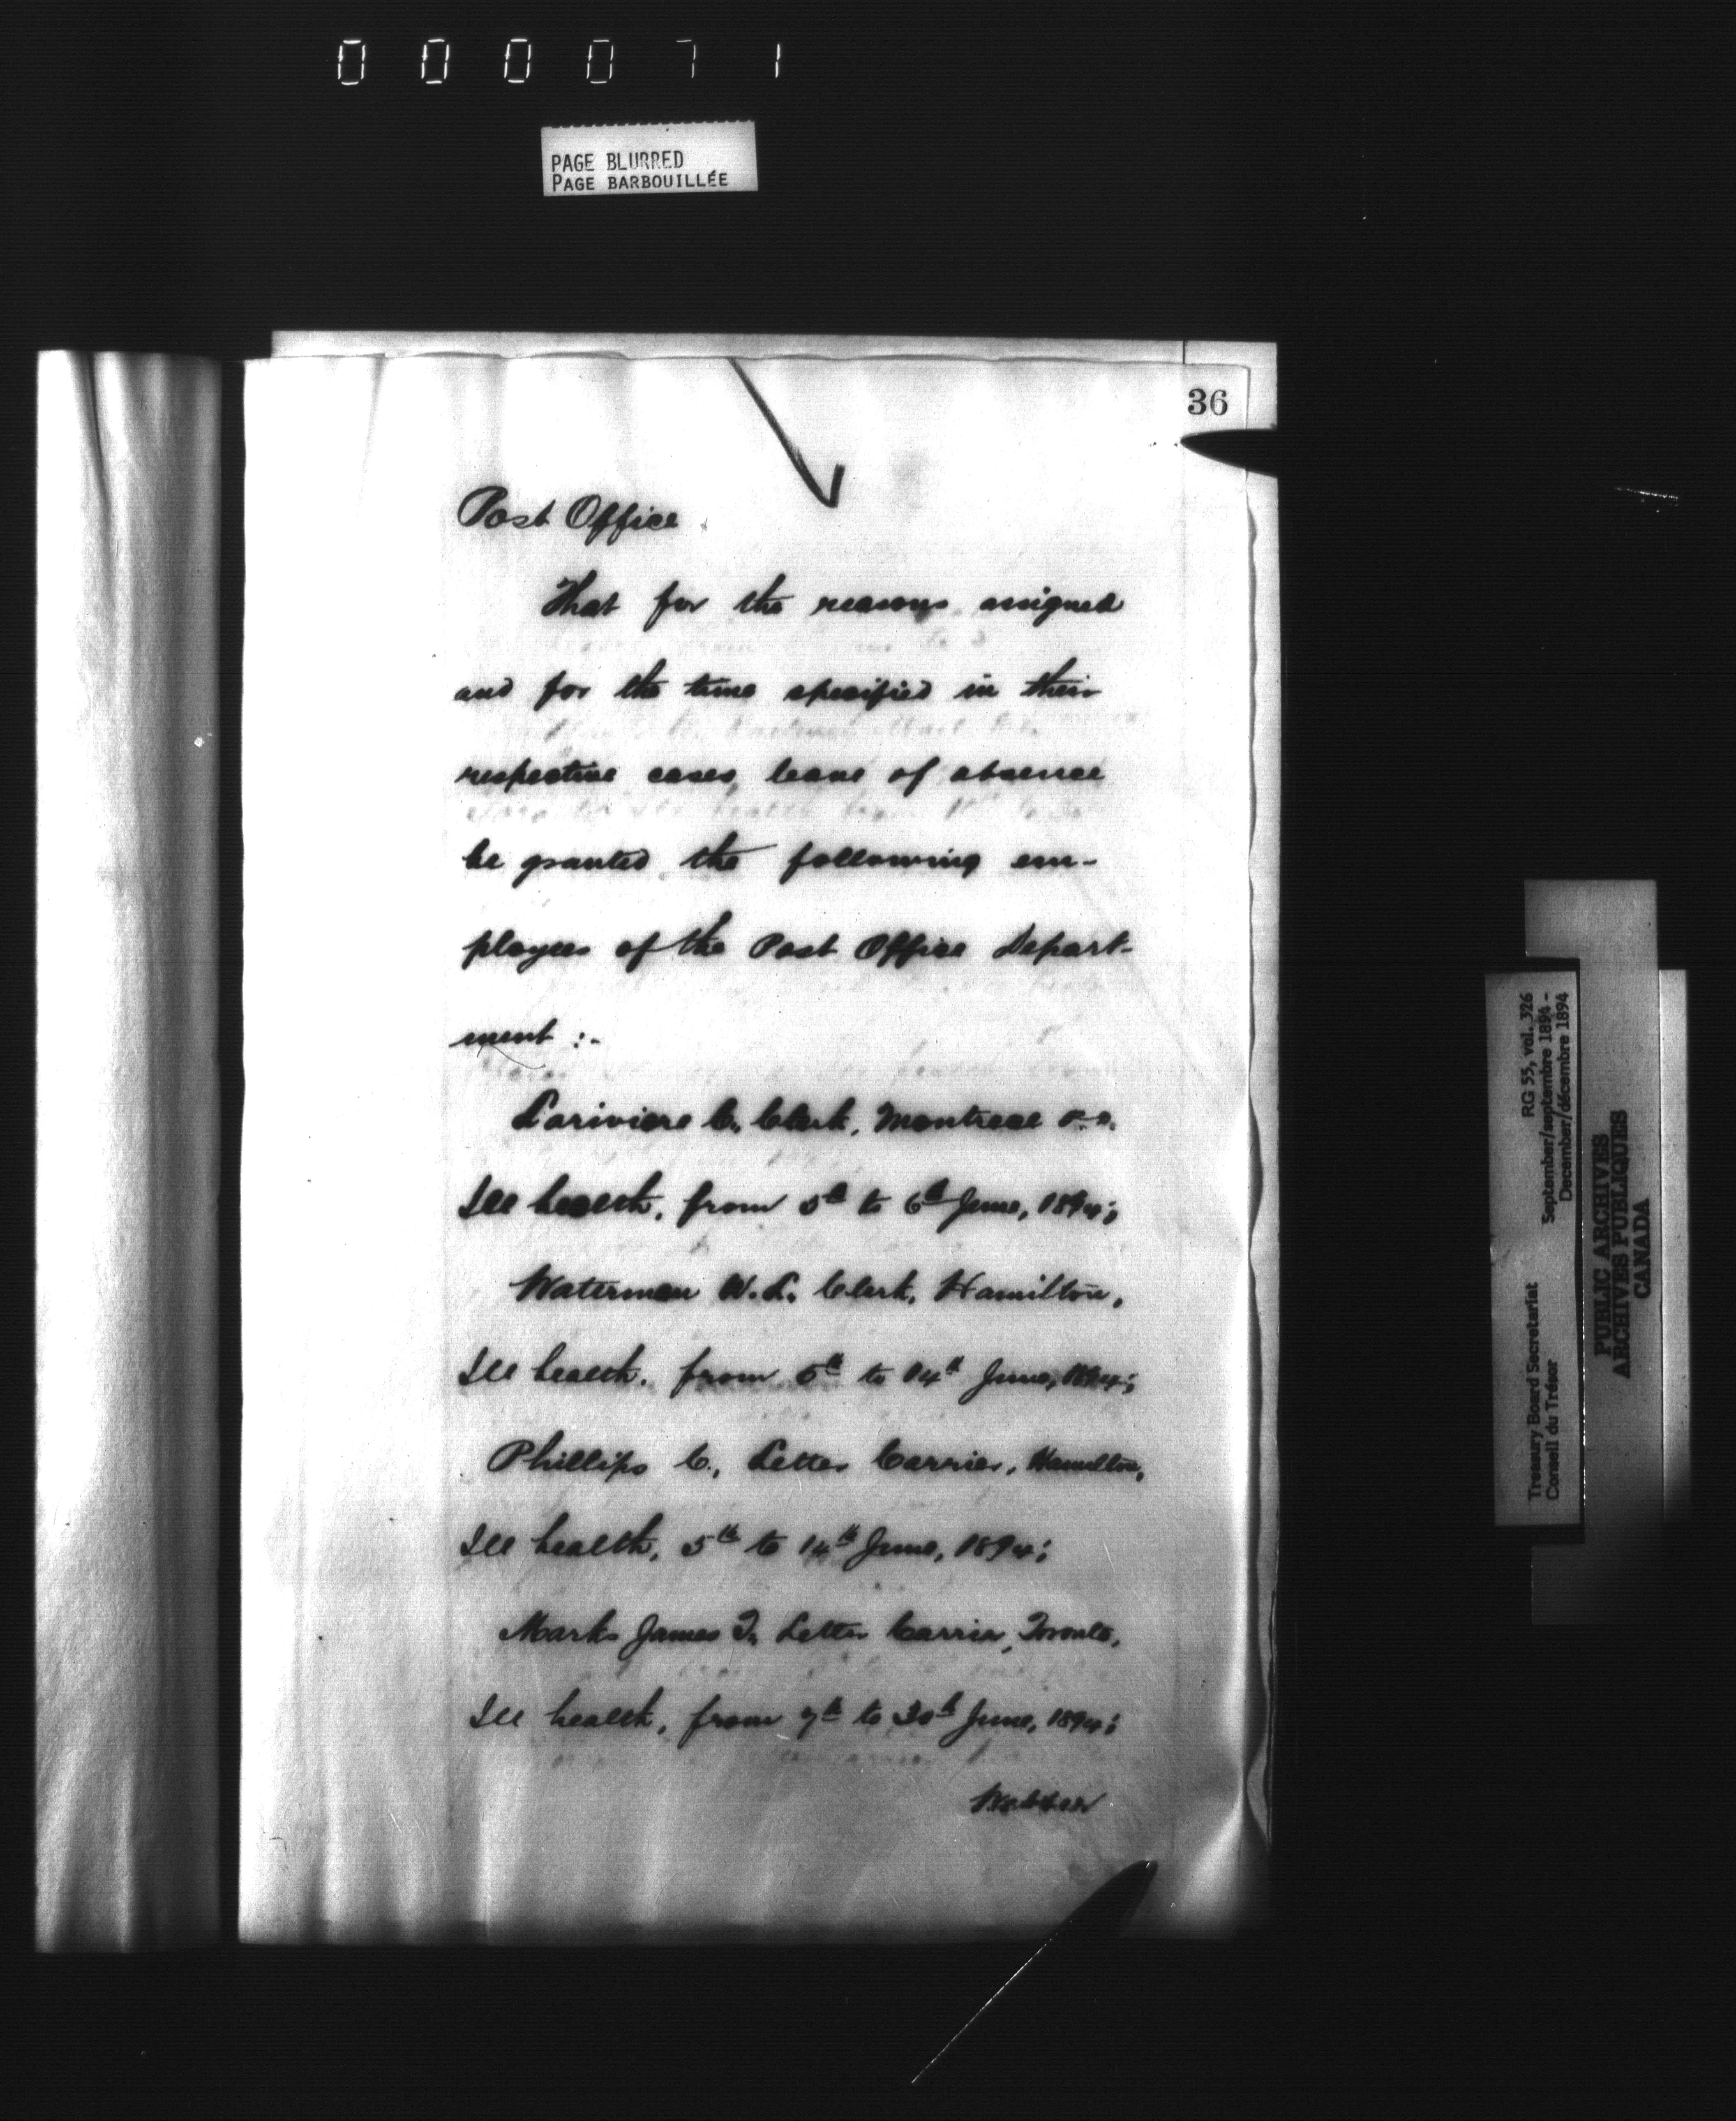 000071
PAGE BLURRED
PAGE BARBOUILLÉE
36
Post Office
That for the reasons assigned
and for the time specified in their
respective cases, leave of absence
be granted the following em-
ployees of the Post Office Depart-
ment :-
Lariviere C., Clerk, Montreal P.O.
Ill health, from 5th to 6th June, 1894;
Waterman W.L. Clerk, Hamilton,
Ill health, from 5th to 14th June, 1894;
Phillips C., Letter Carrier, Hamilton,
Ill health, 5th to 14th June, 1894;
Marks James T. Letter Carrier, Toronto,
Ill health, from 7th to 30th June, 1894;
Webber
Treasury Board Secretariat RG 55, vol. 326
Conseil du Trésor September/septembre 1894 -
December/décembre 1894
PUBLIC ARCHIVES
ARCHIVES PUBLIQUES
CANADA